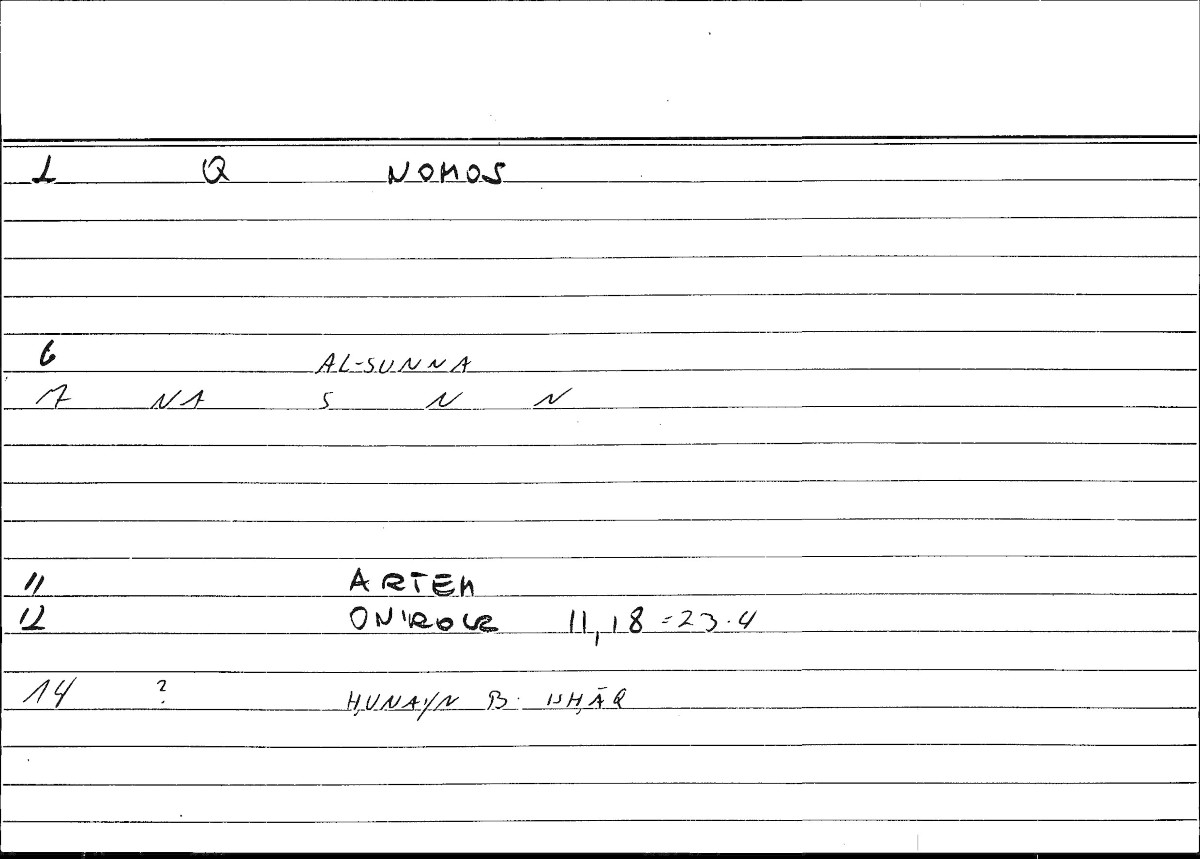 1 Q NOMOS
6 AL-SUNNA
7 NA S N N
11 ARTEM
12 ONIROCR 11,18=23.4
14 ? ḤUNAYN B. ISḤĀQ